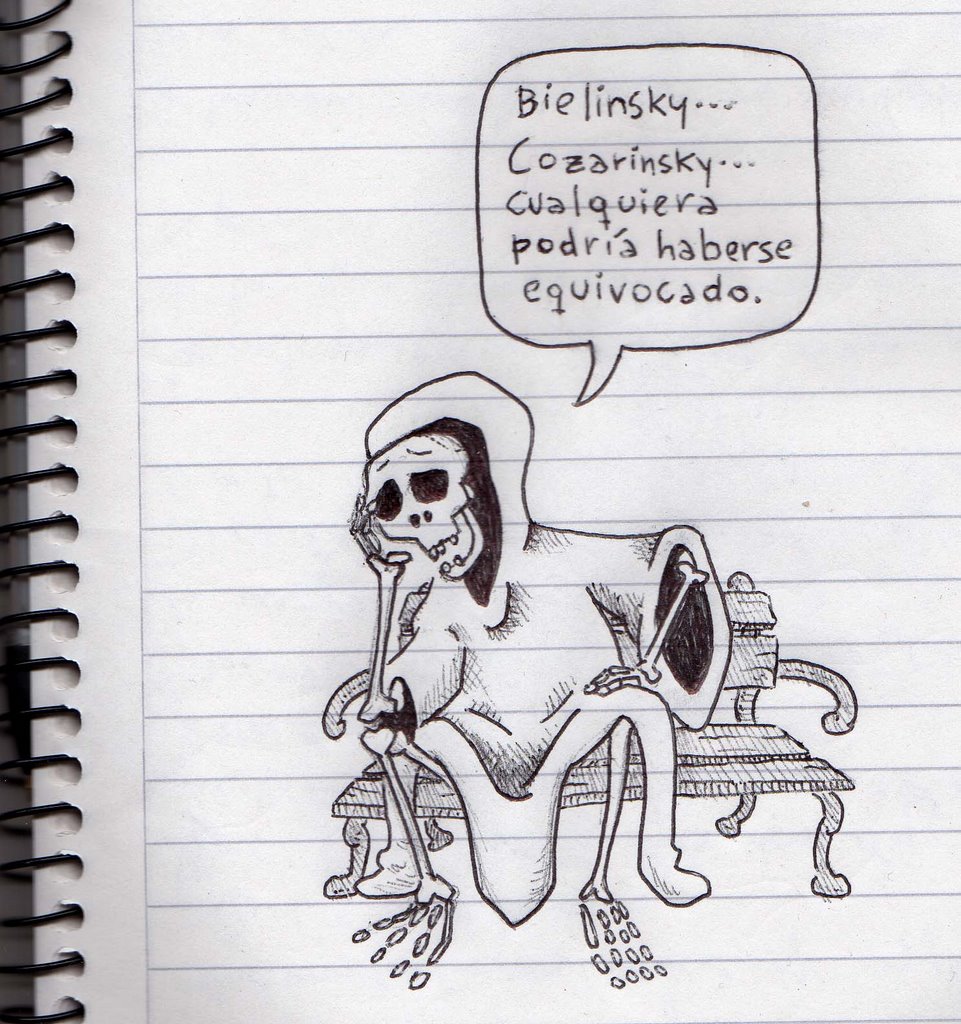 Bielinsky...
Cozarinsky...
cualquiera
podría haberse
equivocado.